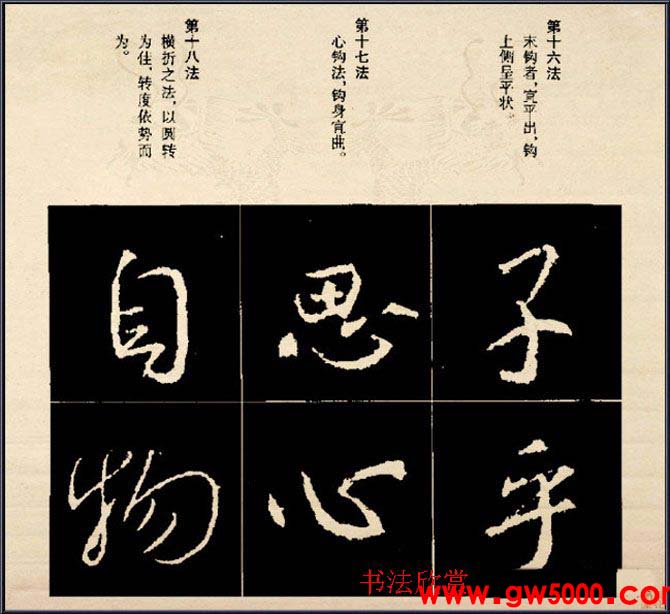 第十六法
末钩者，宜平出，钩
上侧呈平状。
第十七法
心钩法，钩身宜曲。
第十八法
横折之法，以圆转
为佳，转度依势而
为。
子
乎
思
心
自
物
书法欣赏
www.gw5000.com